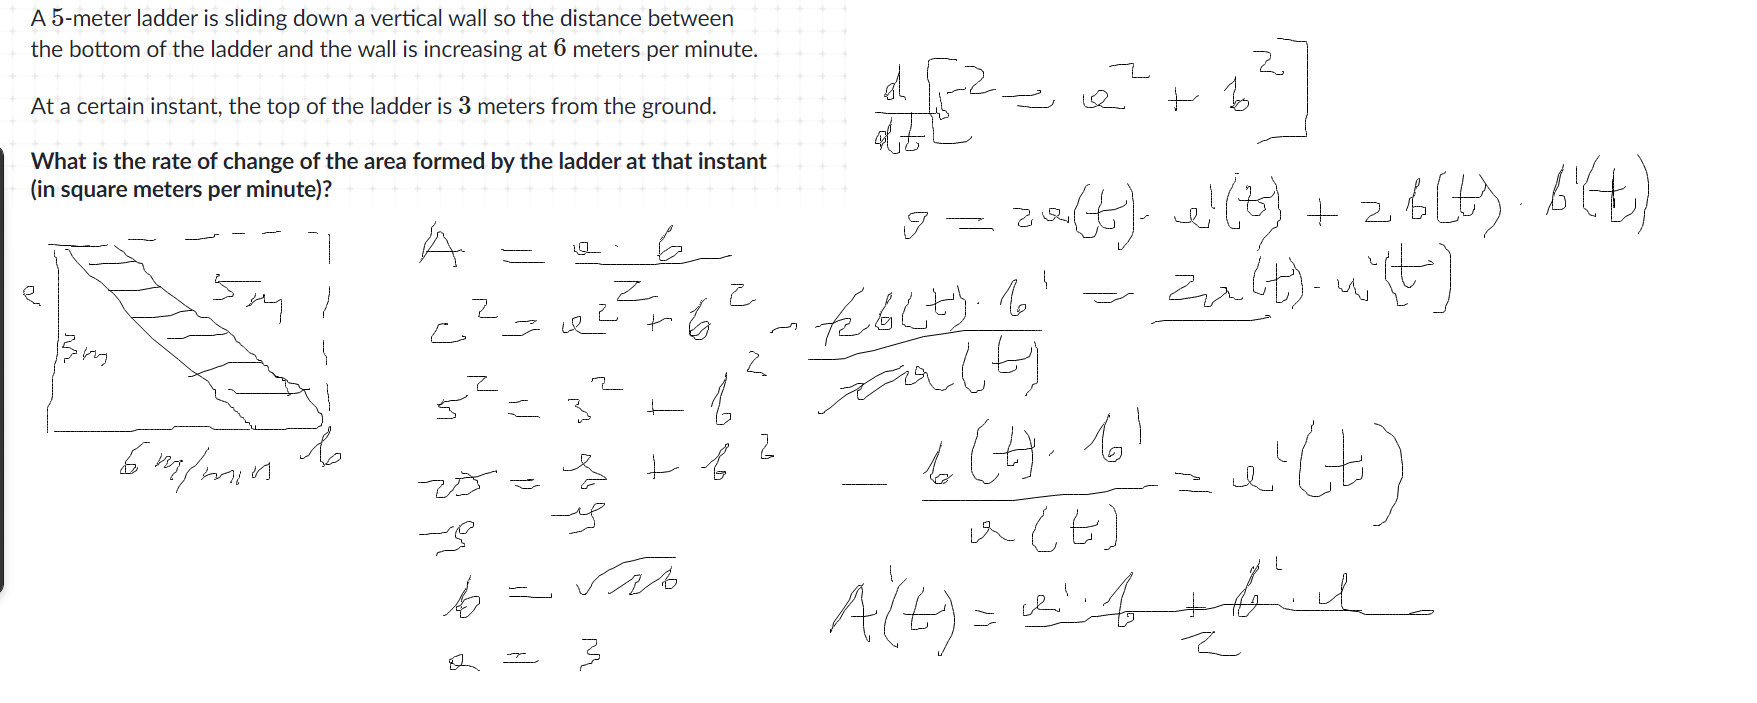 A 5-meter ladder is sliding down a vertical wall so the distance between
the bottom of the ladder and the wall is increasing at 6 meters per minute.
At a certain instant, the top of the ladder is 3 meters from the ground.
What is the rate of change of the area formed by the ladder at that instant
(in square meters per minute)?
a
5m
3m
6 m/min b
A = a · b
c² = a² + b²
5² = 3² + b²
25 = 9 + b²
-9 -9
b = √16
a = 3
d/dt [5² = a² + b²]
0 = 2a(t) · a'(t) + 2b(t) · b'(t)
- 2b(t) · b' = 2a(t) · a'(t)
2a(t)
- b(t) · b' / a(t) = a'(t)
A'(t) = a' · b + b' · a / 2